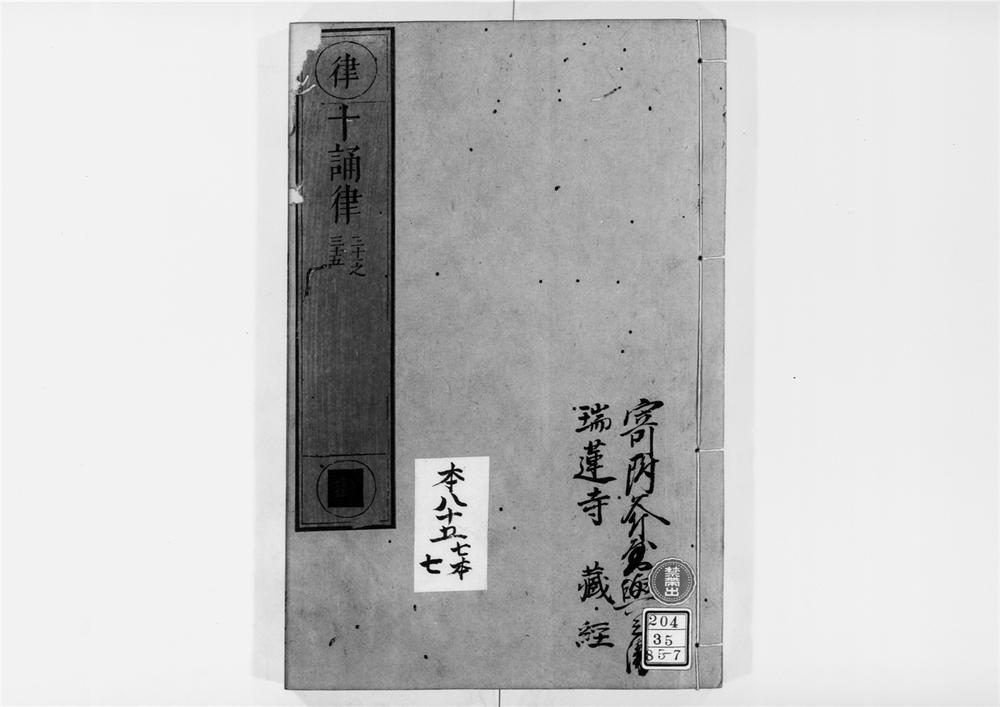 律
十誦律
三十一之
三十五
本八十五
七本
七
寄附
瑞蓮寺 藏經
禁帶出
204
35
85-7